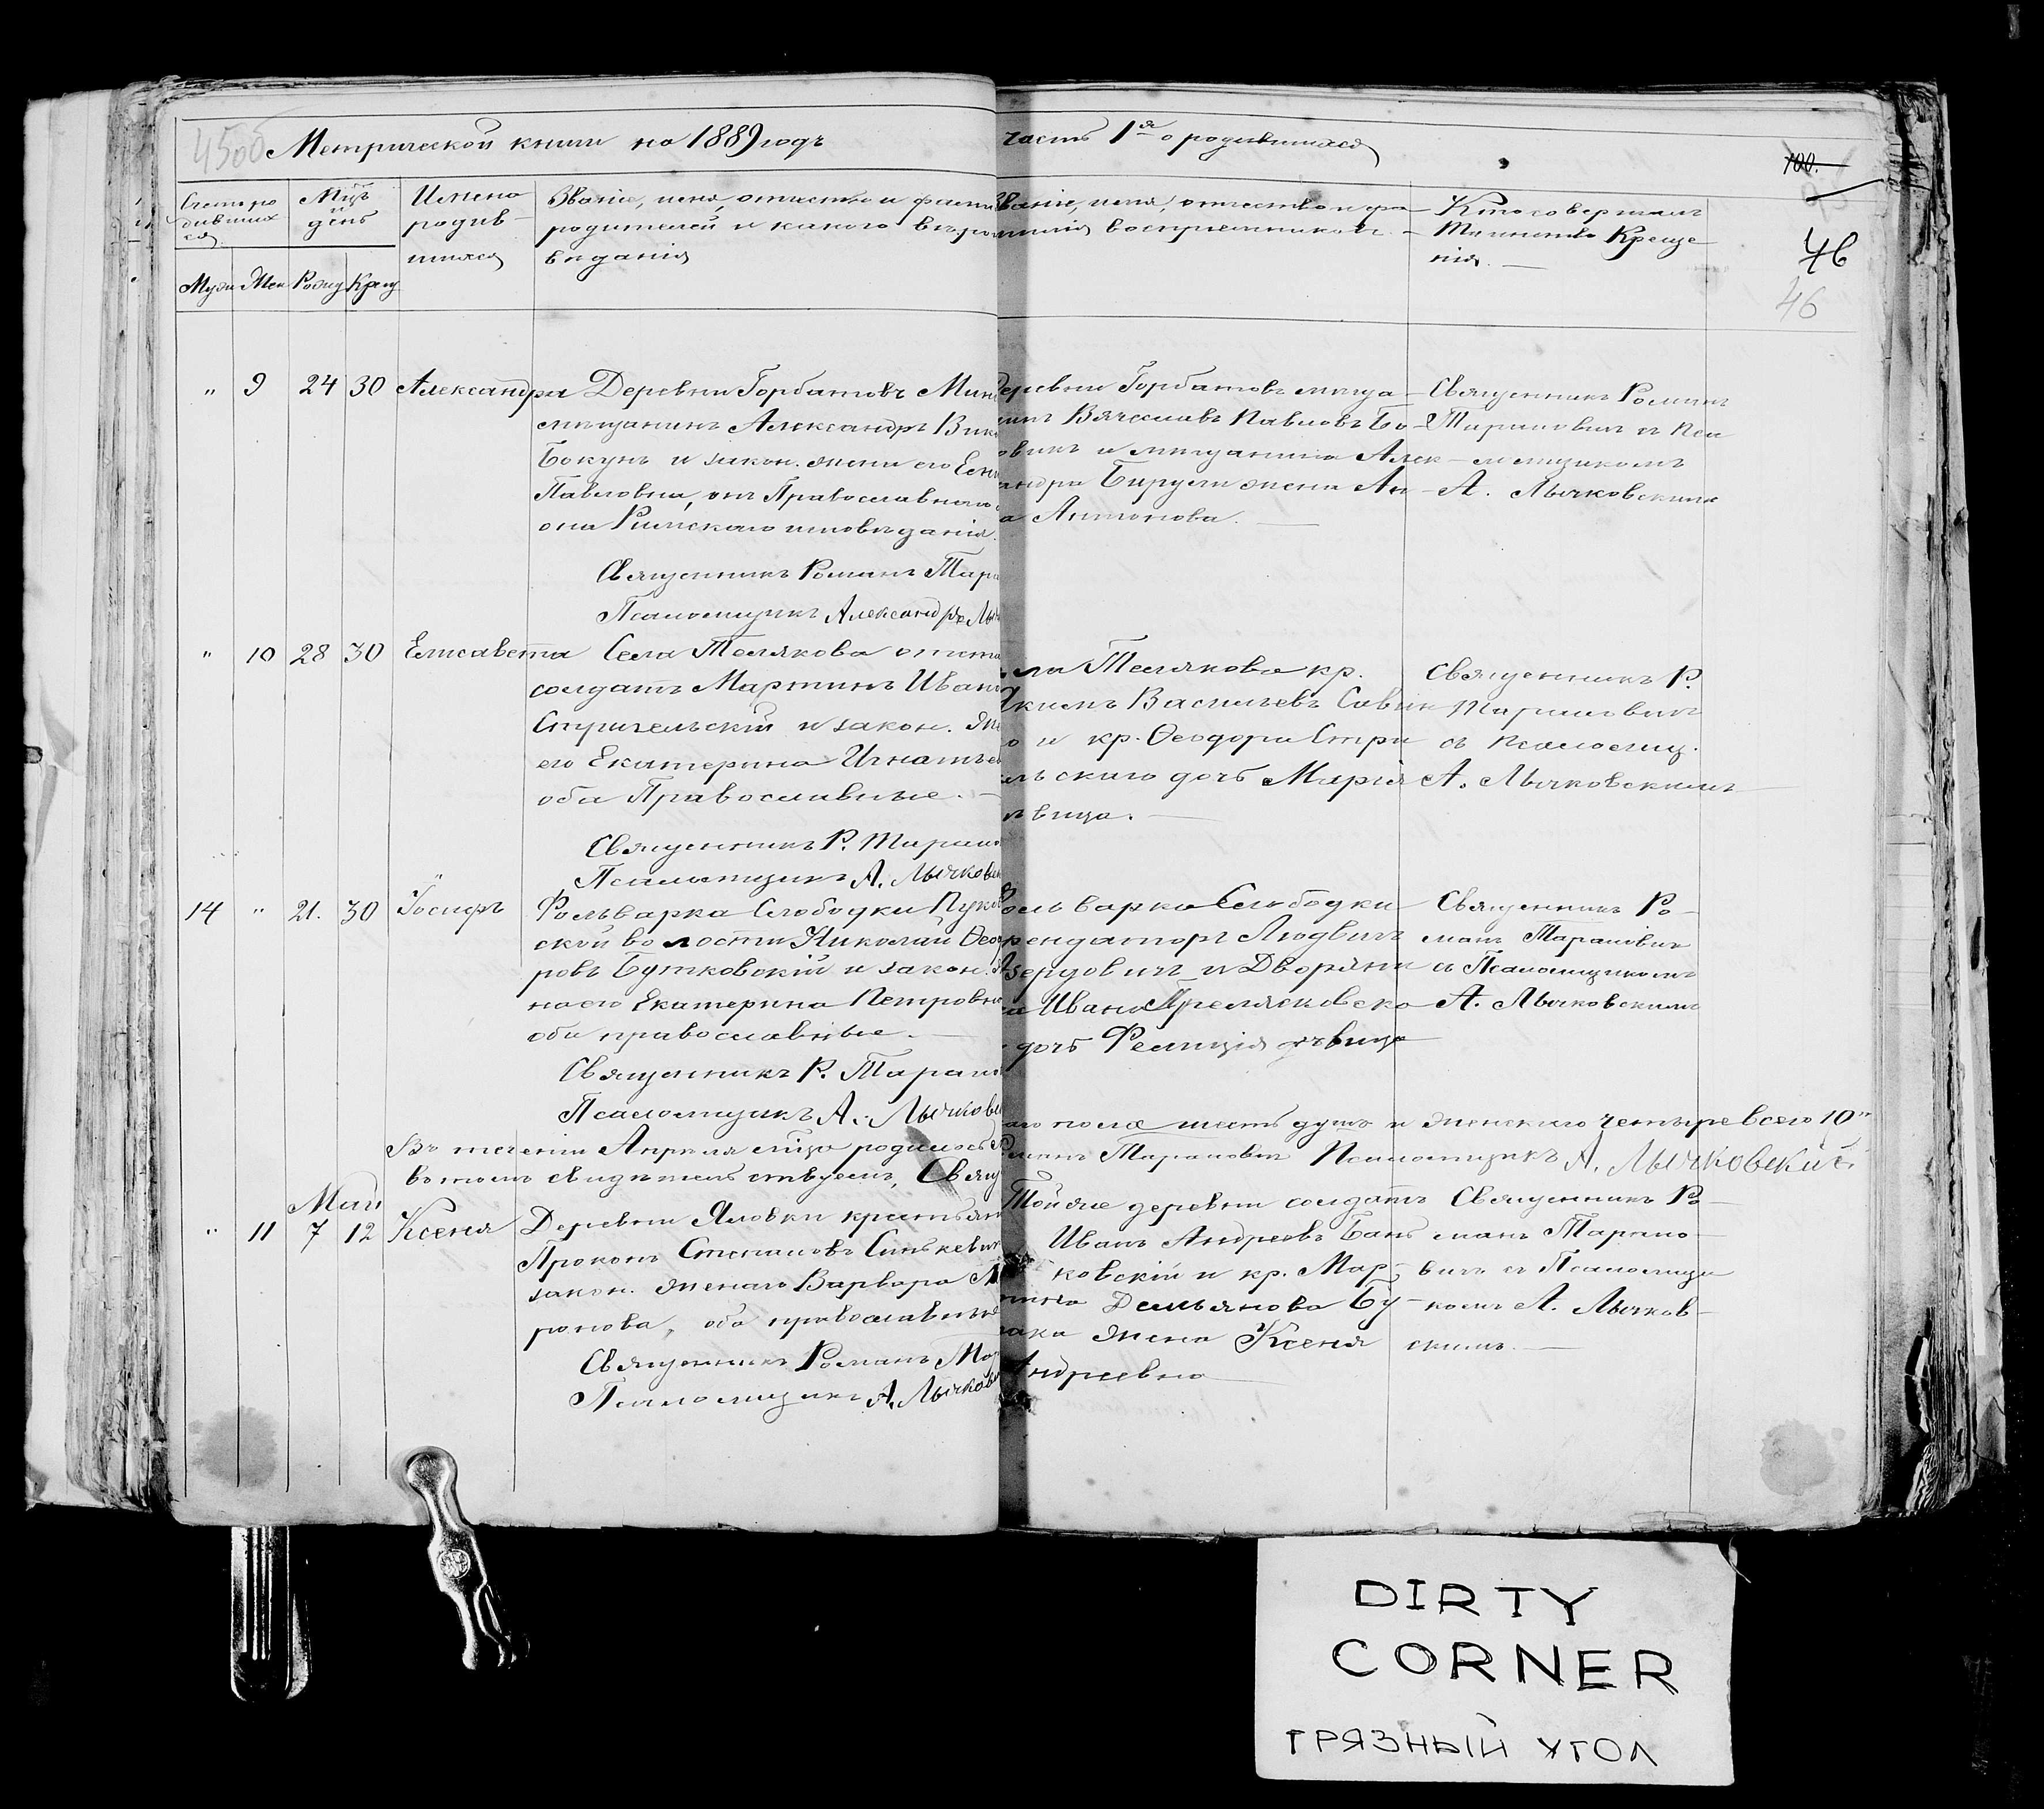 450б Метрической книги на 1889 годъ часть 1я о родившихся
100.
46
46
Счетъ ро
дивших
ся
Мцъ
и
день
Имена
родив-
шихся
Званіе, имя, отчество и фами
родителей и какого вѣро
вѣданія
Званіе, имя, отчество и фа-
милія воспріемниковъ.
Кто совершалъ
Таинство Креще-
нія.
Муж Жен Рожд Крещ
" 9 24 30 Александра
Деревни Горбатовъ Мин
мѣщанинъ Александръ Вик
Бокунъ и закон. жена его Еле
Павловна, онъ Православнаго
она Римскаго исповѣданія.
Священникъ Романъ Тара
Псаломщикъ Александръ Лы
деревни Горбатовъ мѣща-
нинъ Вячеславъ Павловъ Бо-
овикъ и мѣщанина Алек-
андра Бирули жена Ан-
а Антонова.
Священникъ Романъ
Тарановичъ съ Пса
ломщикомъ
А. Лычковскимъ
" 10 28 30 Елисавета
Села Телякова
солдатъ Мартинъ Иван
Стричельскій и закон. же
его Екатерина Игнатьев
оба Православные.
Священникъ Р. Таран
Псаломщикъ А. Лычков
ела Телякова кр.
Якимъ Васильевъ Савин
о и кр. Ѳеодора Стри
ельскаго дочь Марія
ѣвица.
Священникъ Р.
Тарановичъ
съ псаломщ.
А. Лычковскимъ
14 " 21. 30 Іосифъ
Фольварка Слободки Пуков
ской волости Николай Ѳеод
ровъ Бутковскій и закон. ж
на его Екатерина Петровн
оба православные.
Священникъ Р. Таран
Псаломщикъ А. Лычков
Фольварка Слободки
рендаторъ Людвигъ
и Дворяни
а Ивана
дочь Фелиція дѣвица
Священникъ Ро-
манъ Тарановичъ
съ Псаломщикомъ
А. Лычковскимъ
Въ теченіи Апрѣля мѣца родилось
аго пола шесть душъ и женскаго четыре всего 10"
въ томъ свидѣтельствуемъ, Свящ
манъ Тарановичъ Псаломщикъ А. Лычковскій.
Май
" 11 7 12 Ксенія
Деревни Яловки крестьян
Прокопъ Степановъ Синькевич
закон. жена его Варвара М
ронова, оба православные
Священникъ Романъ
Псаломщикъ А. Лычков
Той же деревни солдатъ
Иванъ Андреевъ Бань
ковскій и кр. Мар-
тина Демьянова Бу-
рака жена Ксенія
Андреевна
Священникъ Ро-
манъ Тарано-
вичъ съ Псаломщи
комъ А. Лычков-
скимъ.
DIRTY
CORNER
ГРЯЗНЫЙ УГОЛ